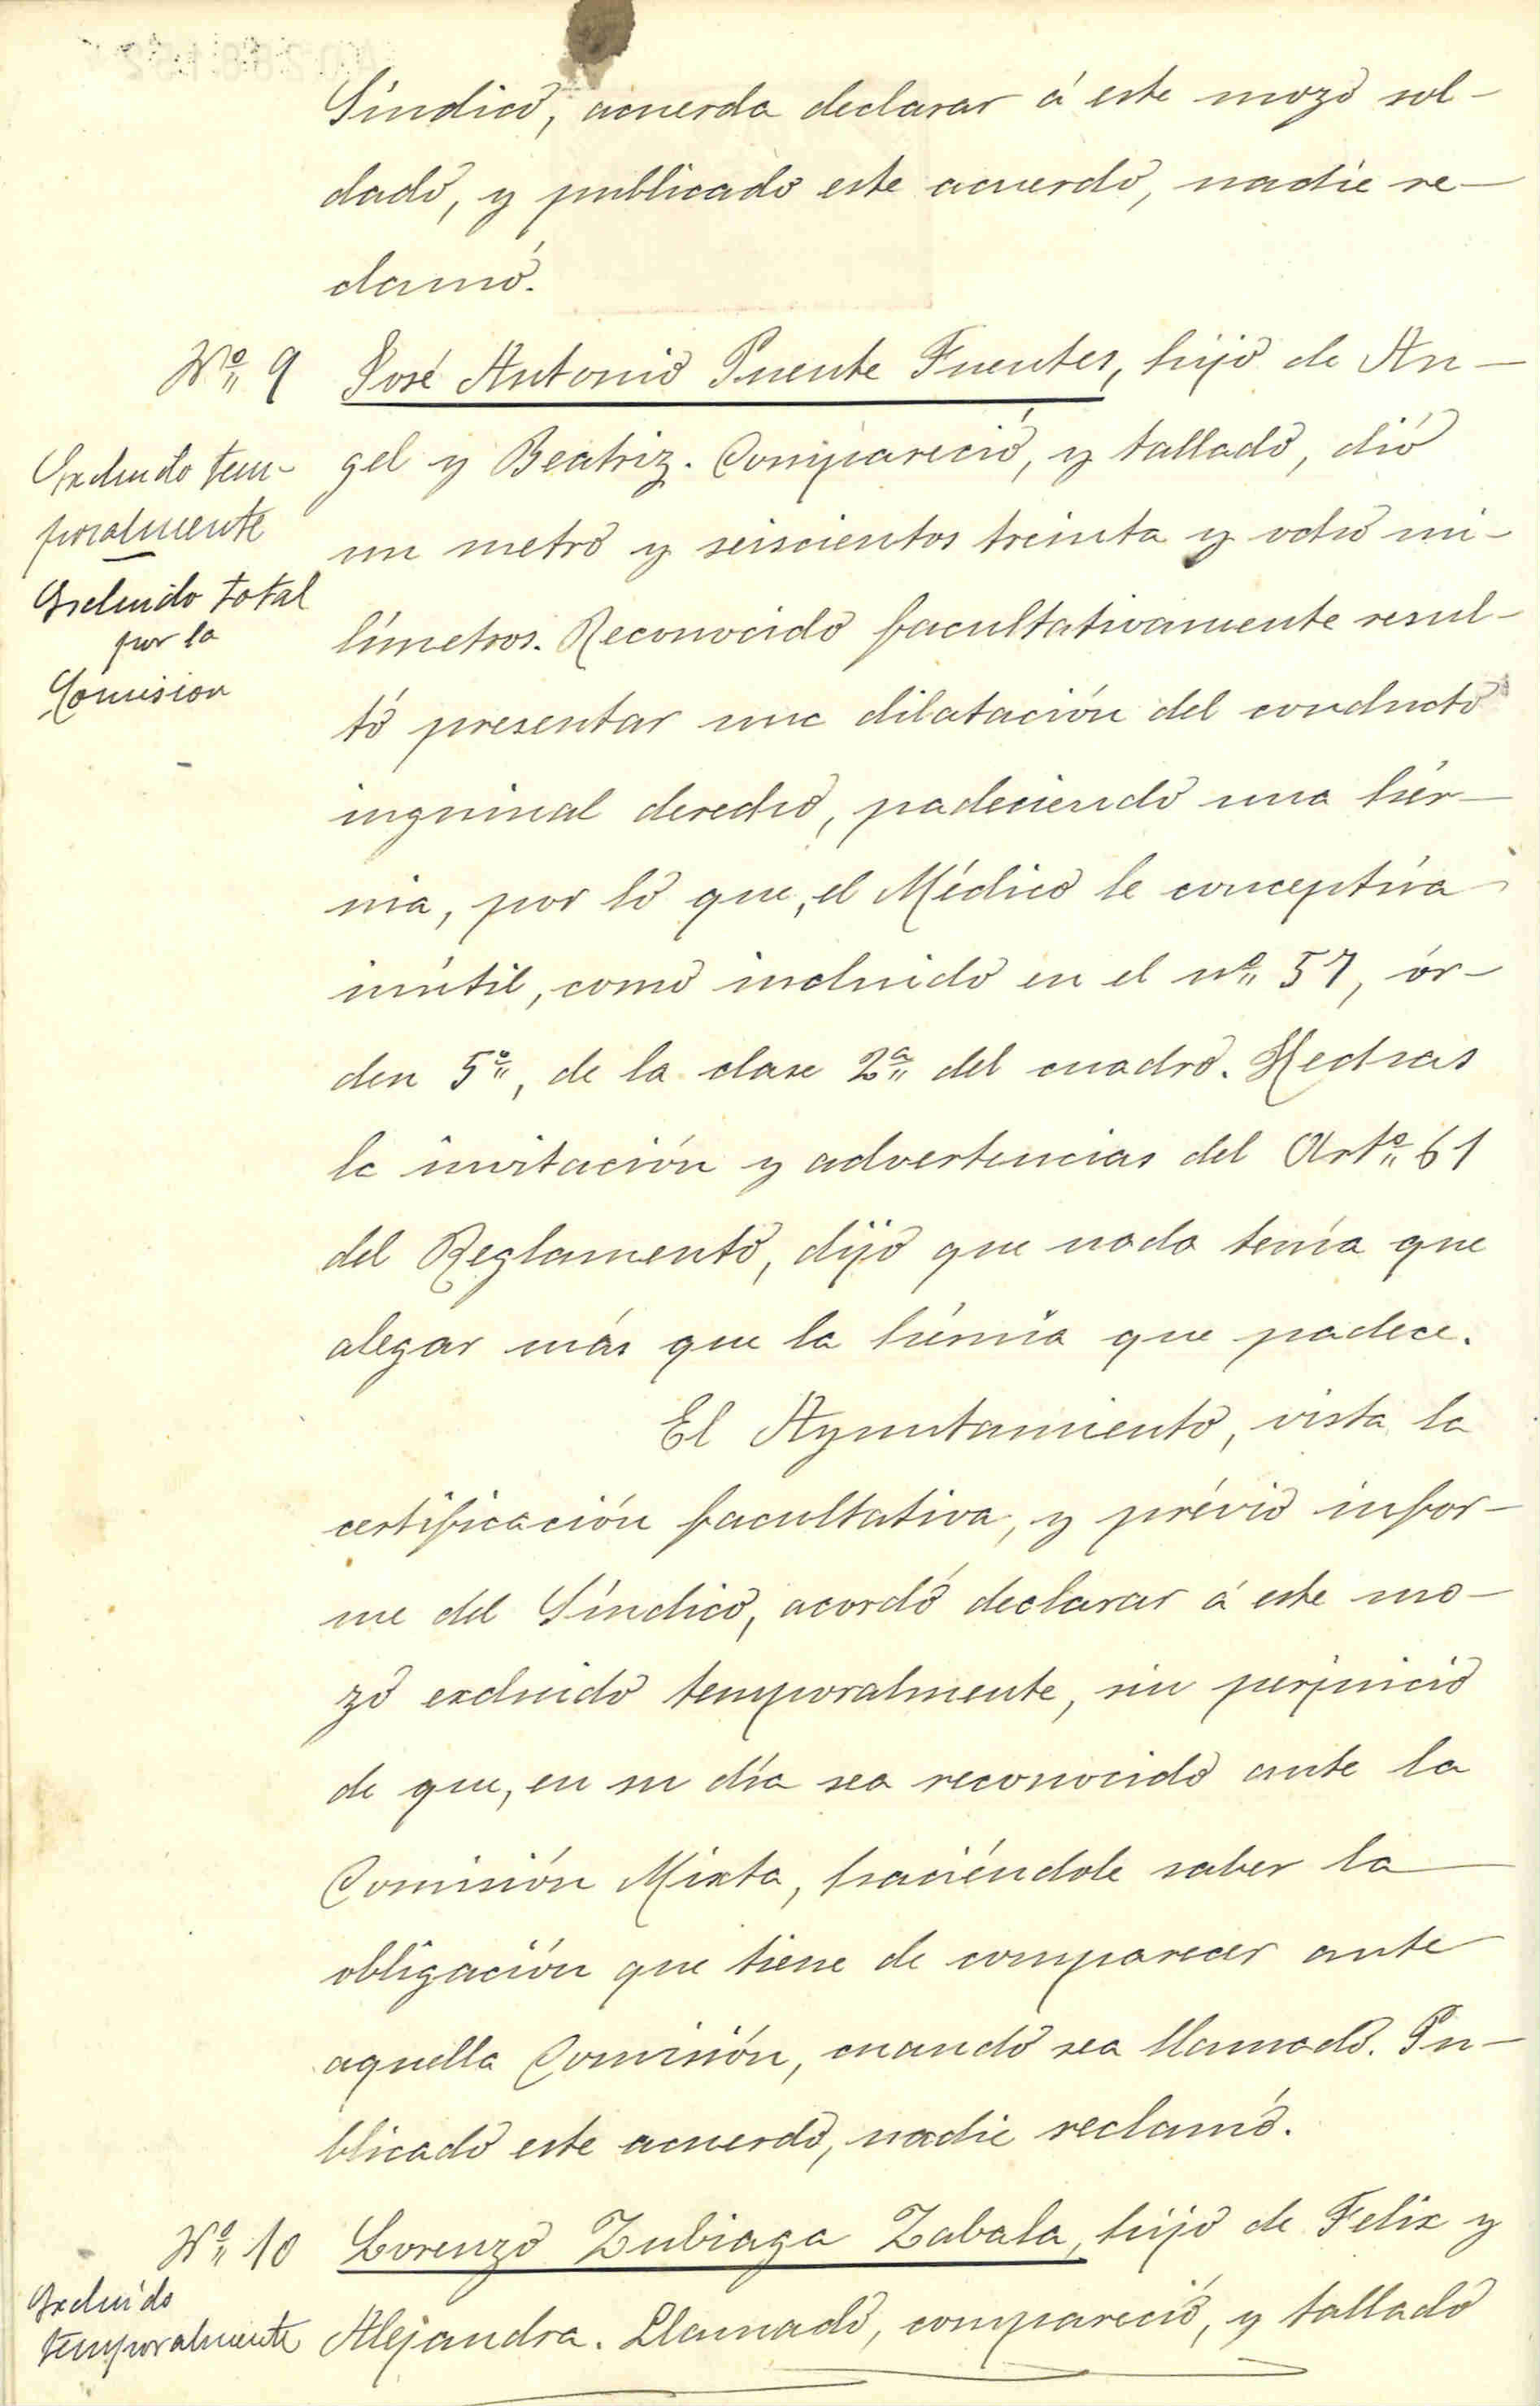 Síndico, acuerda declarar á este mozo sol-
dado, y publicado este acuerdo, nadie re-
clamó.
Nº 9 José Antonio Puente Fuentes, hijo de An-
gel y Beatriz. Compareció, y tallado, dió
Excluido tem-
poralmente
un metro y seiscientos treinta y ocho mi-
Excluido total
por la
Comision
límetros. Reconocido facultativamente resul-
tó presentar una dilatación del conducto
inguinal derecho, padeciendo una hér-
nia, por lo que, el Médico le conceptúa
inútil, como incluido en el nº 57, ór-
den 5º, de la clase 2ª del cuadro. Hechas
la invitación y advertencias del Artº 61
del Reglamento, dijo que nada tenía que
alegar más que la hérnia que padece.
El Ayuntamiento, vista la
certificación facultativa, y prévio infor-
me del Síndico, acordó declarar á este mo-
zo excluido temporalmente, sin perjuicio
de que, en su día sea reconocido ante la
Comisión Mixta, haciéndole saber la
obligación que tiene de comparecer ante
aquella Comisión, cuando sea llamado. Pu-
blicado este acuerdo, nadie reclamó.
Nº 10 Lorenzo Zubiaga Zabala, hijo de Felix y
Excluido
temporalmente
Alejandra. Llamado, compareció, y tallado